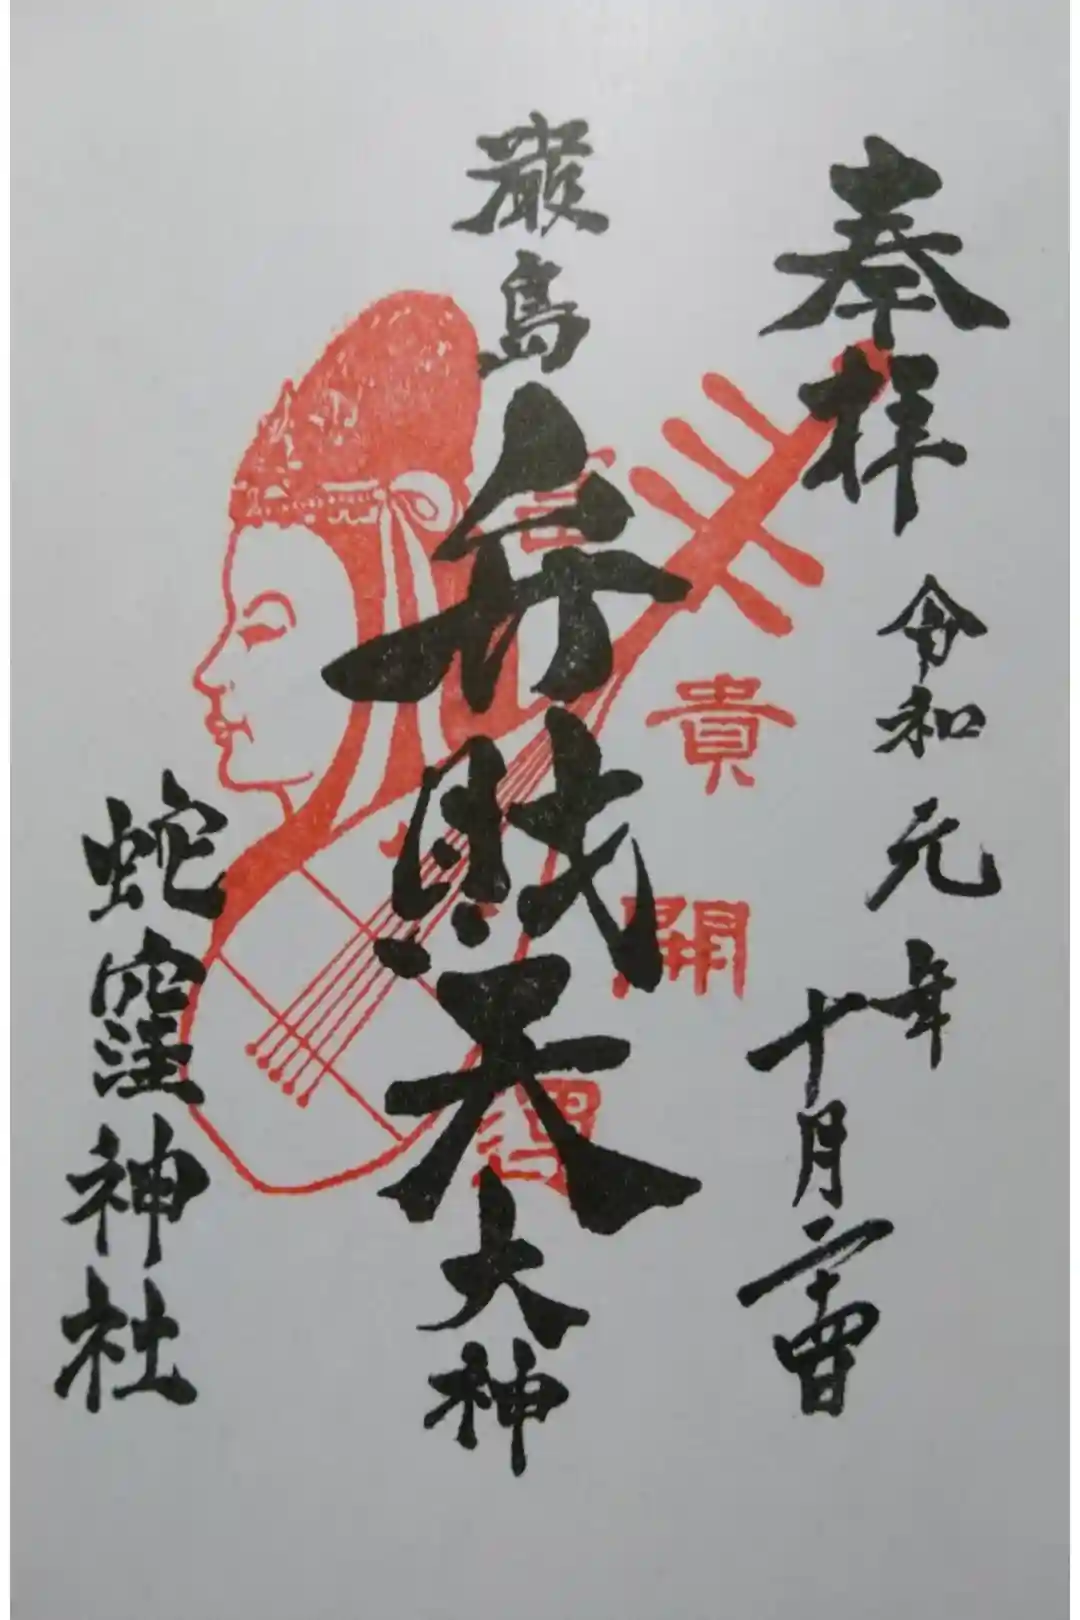 奉拝
令和元年
十月二十四日
厳島
弁財天
大神
貴
開
蛇窪神社